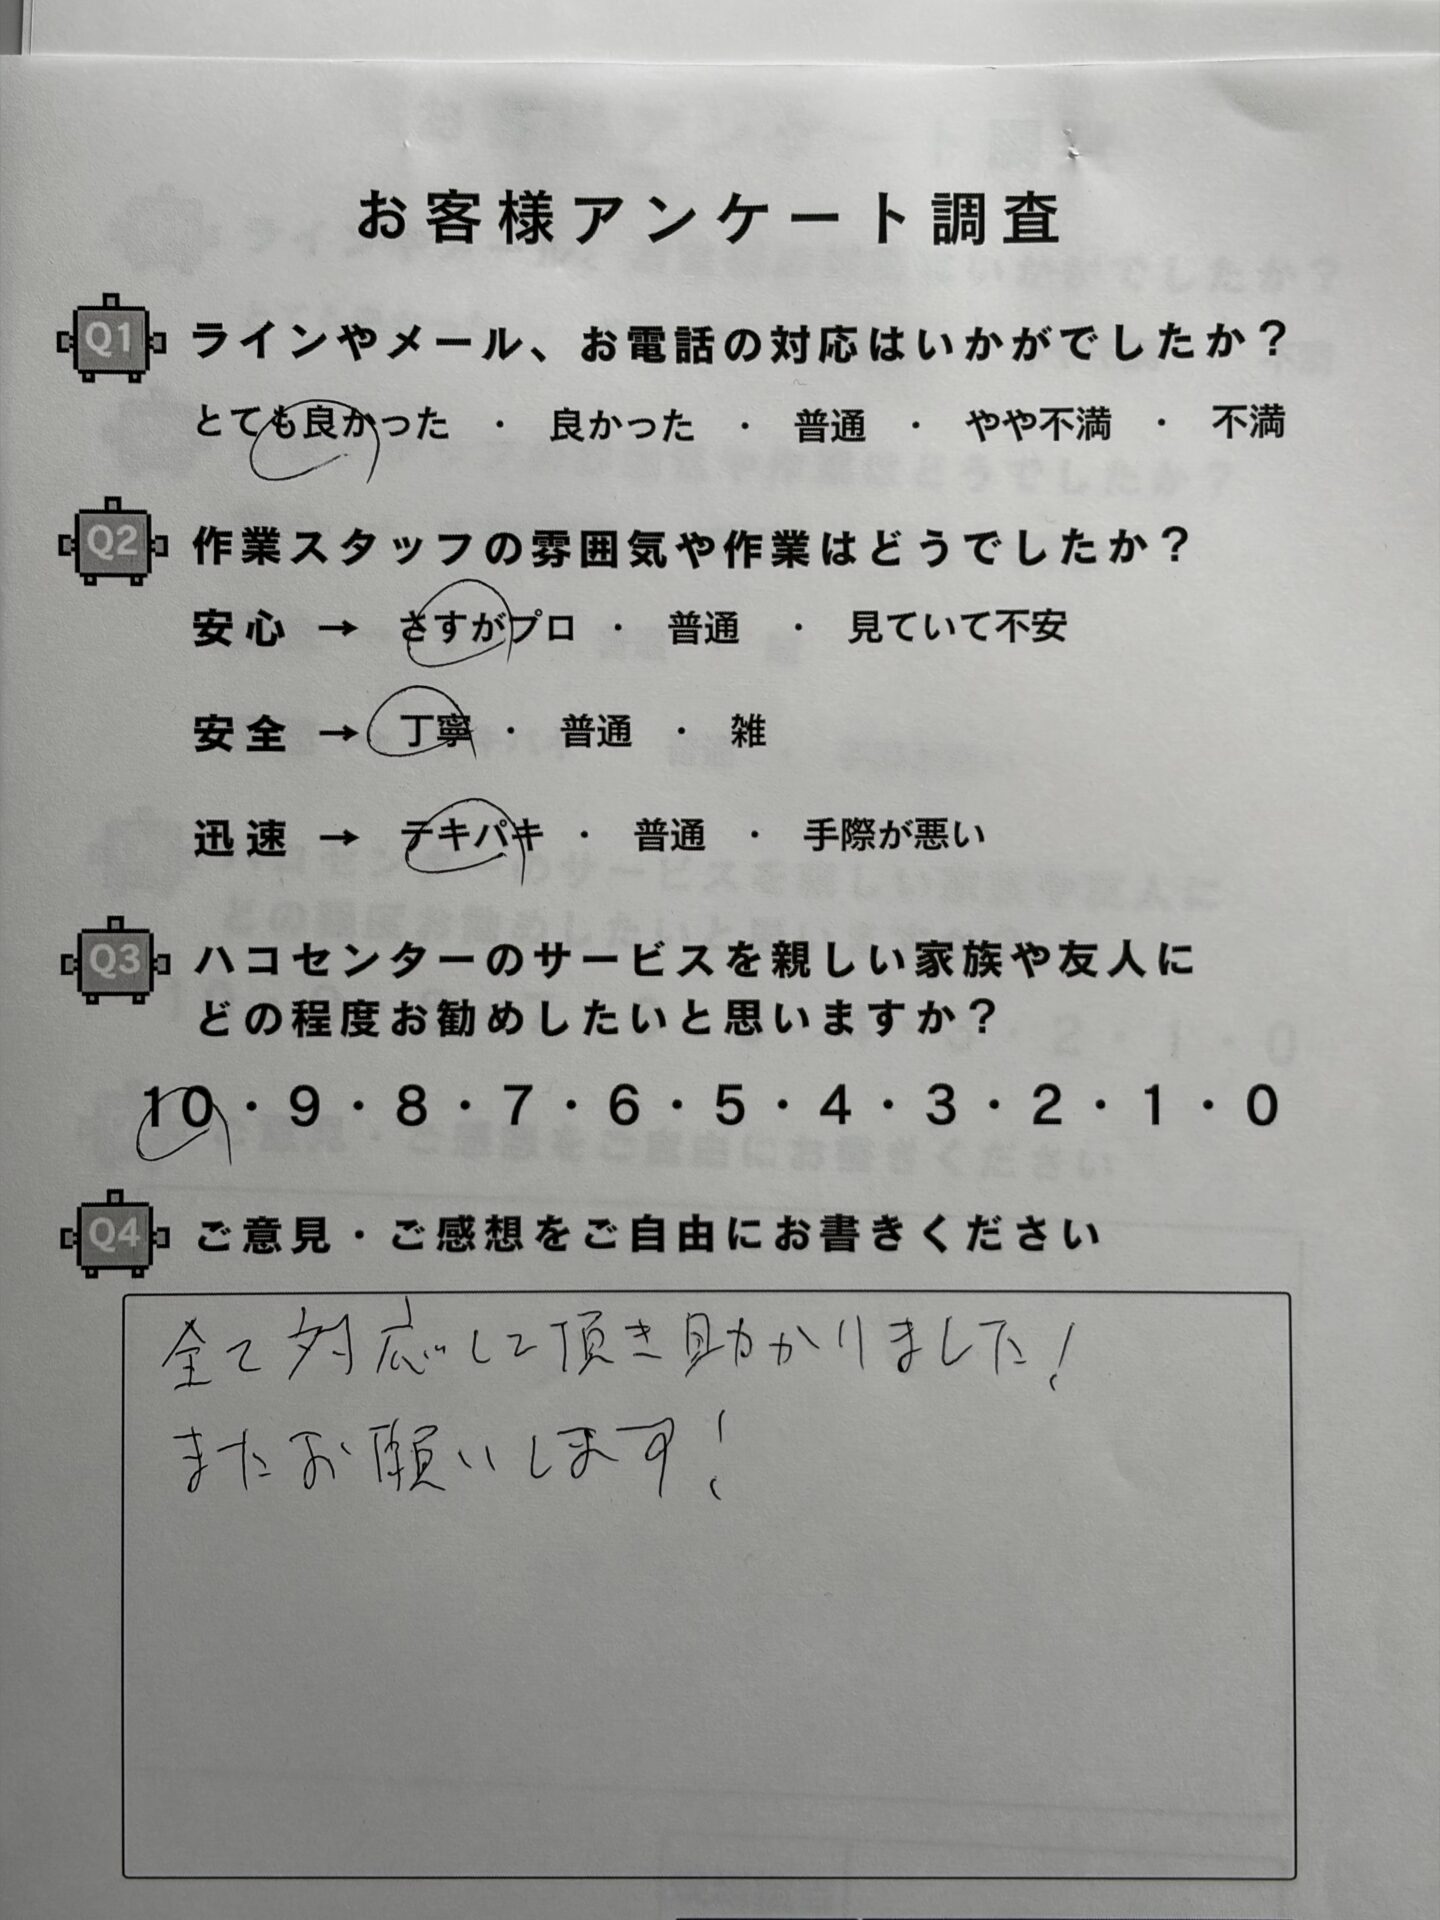 お客様アンケート調査
Q1 ラインやメール、お電話の対応はいかがでしたか？
とても良かった ・ 良かった ・ 普通 ・ やや不満 ・ 不満
Q2 作業スタッフの雰囲気や作業はどうでしたか？
安心 → さすがプロ ・ 普通 ・ 見ていて不安
安全 → 丁寧 ・ 普通 ・ 雑
迅速 → テキパキ ・ 普通 ・ 手際が悪い
Q3 ハコセンターのサービスを親しい家族や友人に
どの程度お勧めしたいと思いますか？
10・9・8・7・6・5・4・3・2・1・0
Q4 ご意見・ご感想をご自由にお書きください
全て対応して頂き助かりました!
またお願いします!